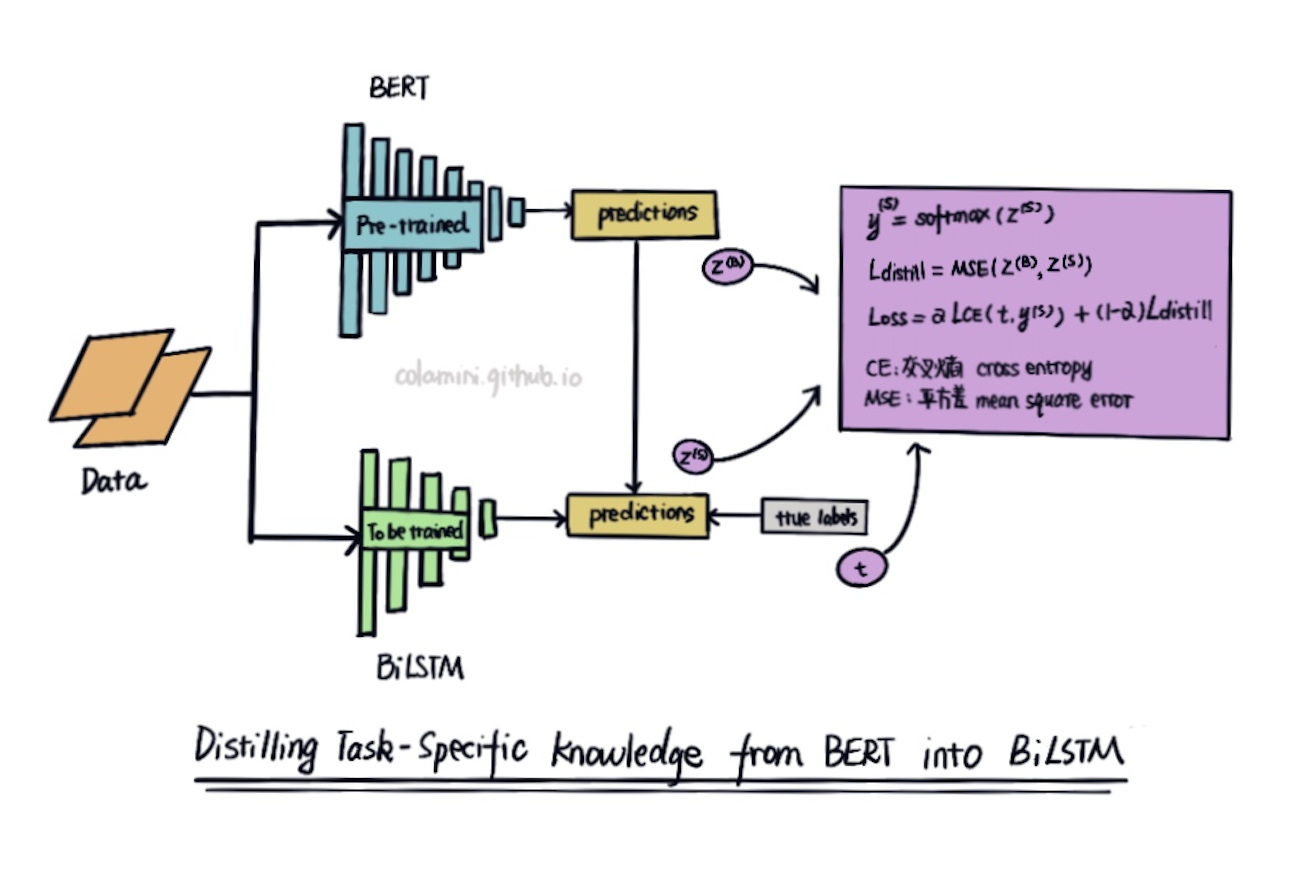 BERT
Pre-trained
predictions
Z⁽ᴮ⁾
y⁽ˢ⁾ = softmax(Z⁽ˢ⁾)
Ldistill = MSE(Z⁽ᴮ⁾, Z⁽ˢ⁾)
Loss = a LCE(t, y⁽ˢ⁾) + (1-a)Ldistill
CE: 交叉熵 cross entropy
MSE: 平方差 mean square error
colamini.github.io
Data
Z⁽ˢ⁾
To be trained
predictions
true labels
t
BiLSTM
Distilling Task-Specific Knowledge from BERT into BiLSTM